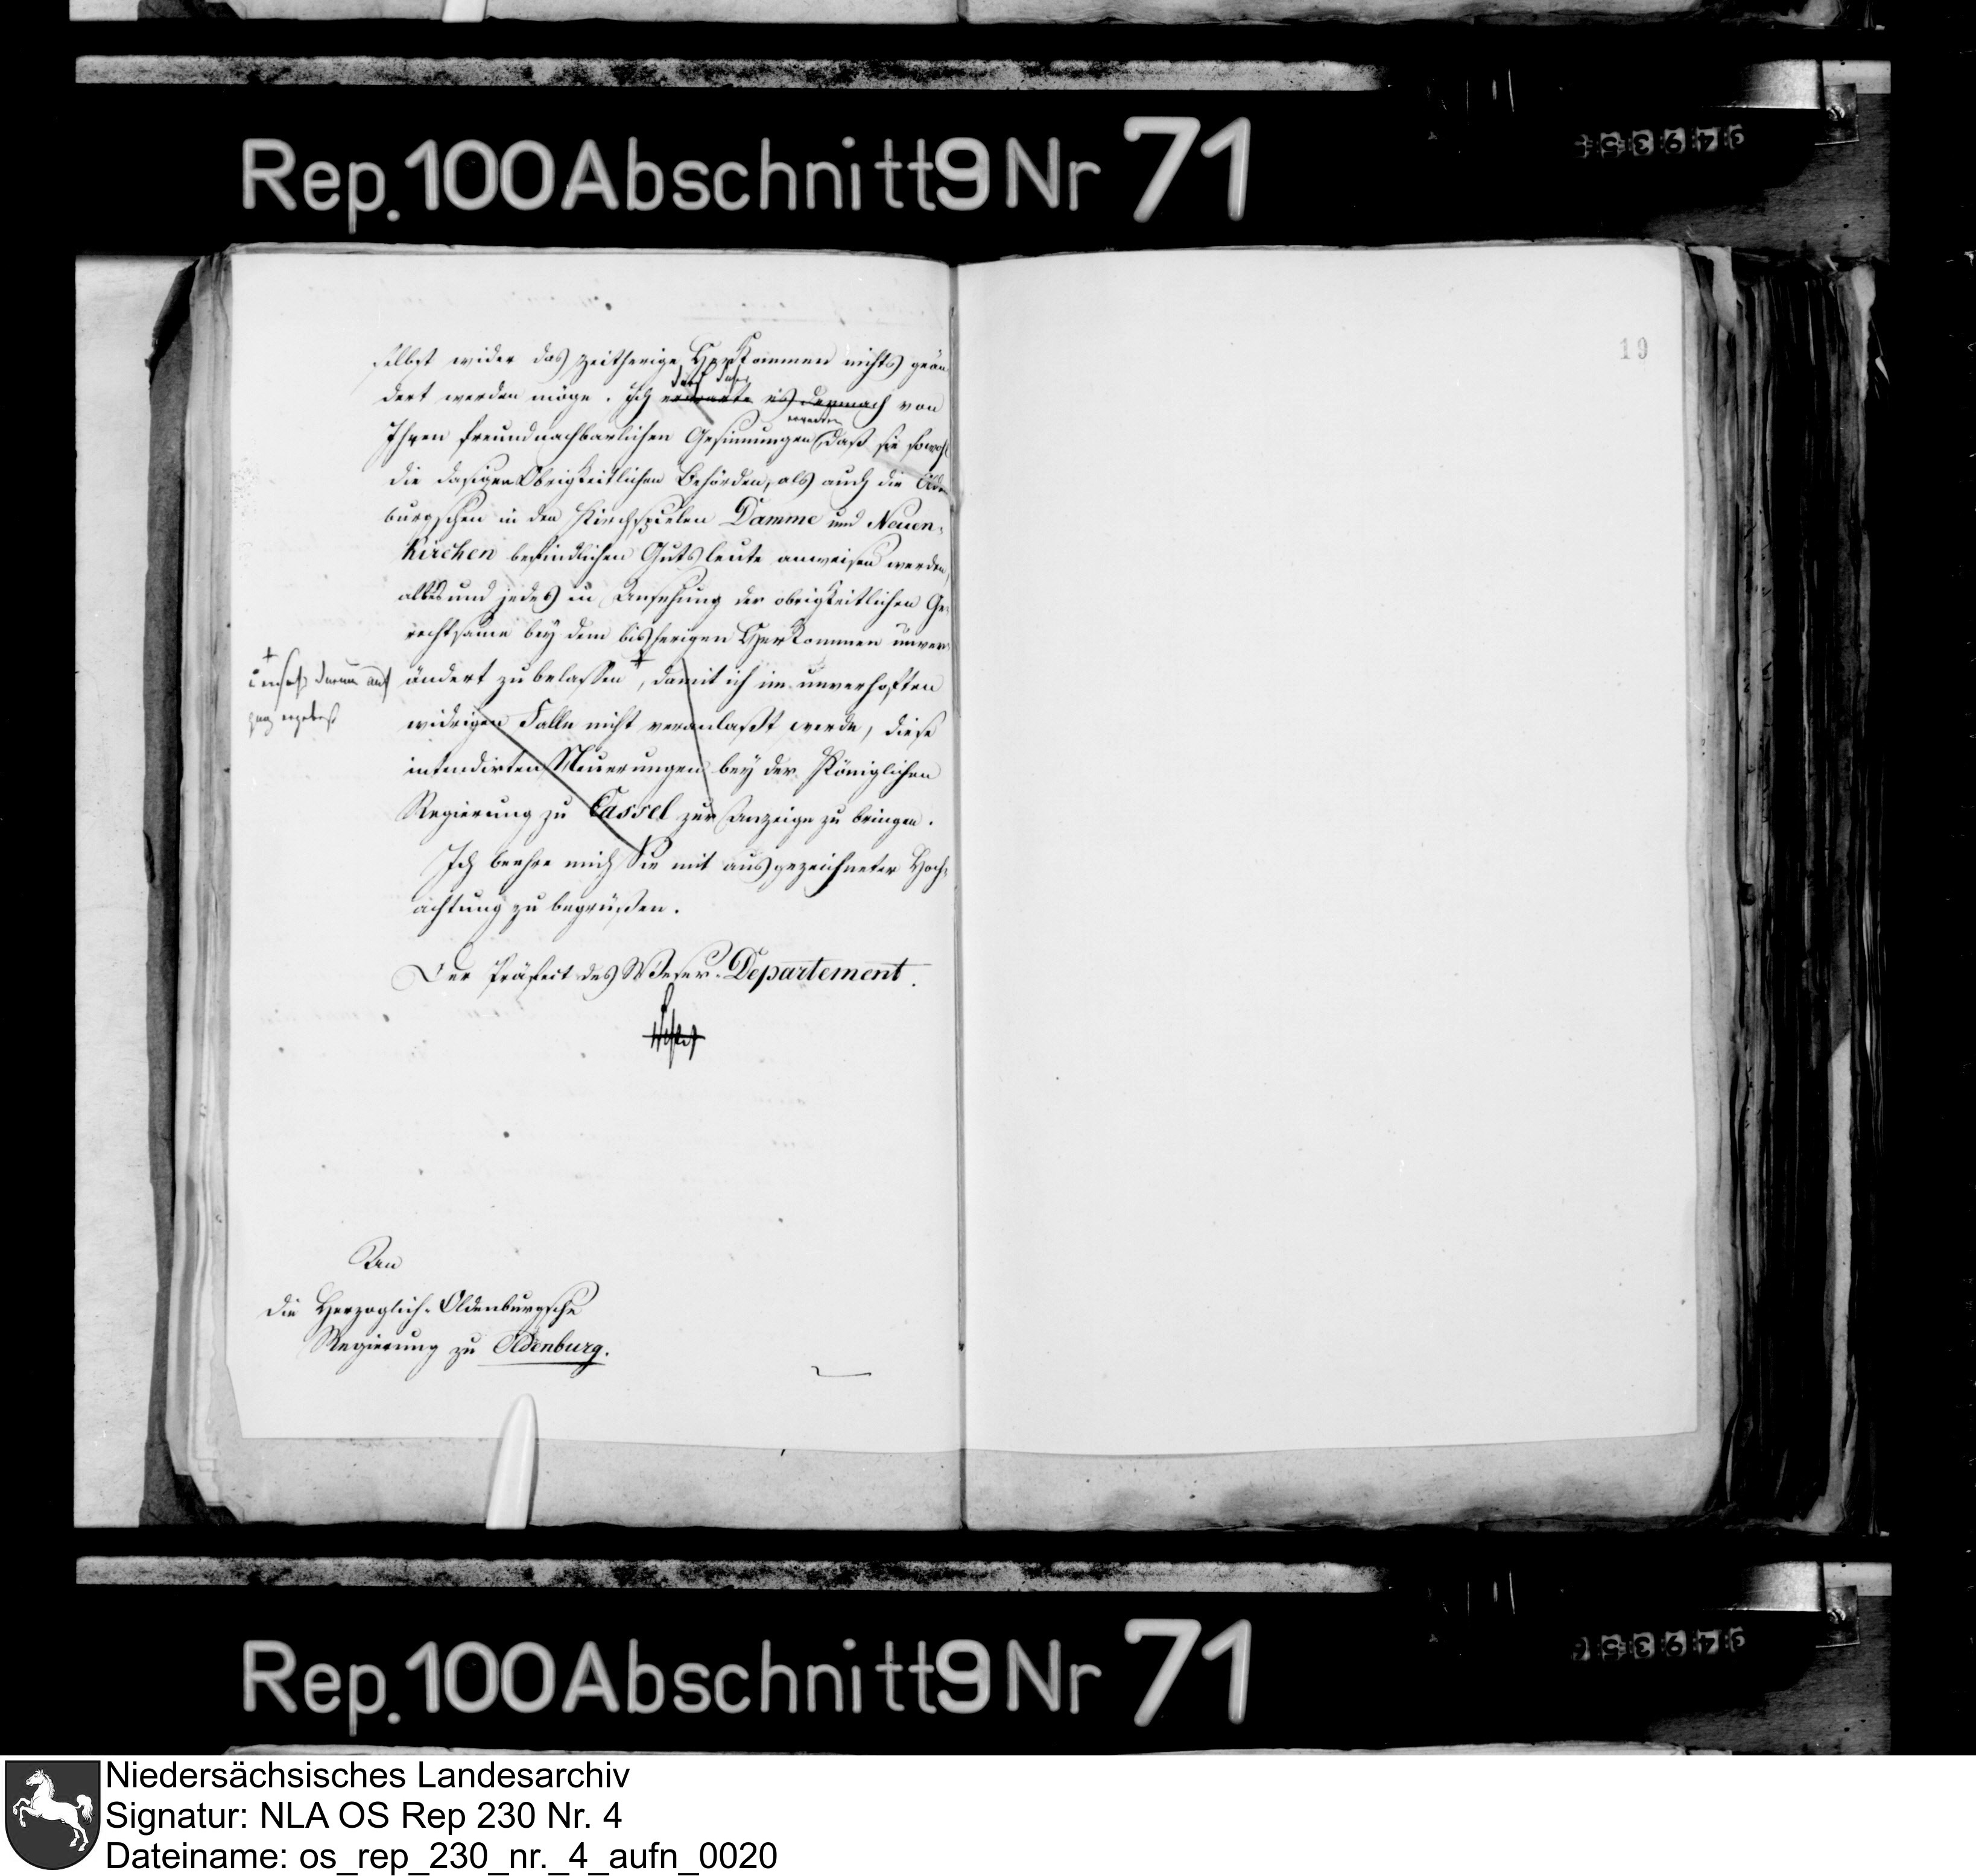 Rep. 100 Abschnitt 9 Nr 71
349356
19
selbst wider das zeitherige Herkommen nichts geän-
dert werden möge. Ich erwarte es demnach von
darf daher
Ihren freundnachbarlichen Gesinnungen, daß sie sowohl
erwarten
die dasigen Obrigkeitlichen Behörden, als auch die Olden-
burgschen in den Kirchspielen Damme und Neuen-
kirchen befindlichen Gutsleute anweisen werden,
alles und jedes in Ansehung der obrigkeitlichen Ge-
rechtsame bey dem bisherigen Herkommen unver-
ändert zu belassen +, damit ich im unverhofften
+
darum
ganz ergebenst
widrigen Falle nicht veranlaßt werde, diese
intendirten Neuerungen bey der Königlichen
Regierung zu Cassel zur Anzeige zu bringen.
Ich beehre mich Sie mit ausgezeichneter Hoch-
achtung zu begrüßen.
Der Präfect des Weser-Departement.
An
die Herzoglich-Oldenburgsche
Regierung zu Oldenburg.
Rep. 100 Abschnitt 9 Nr 71
Niedersächsisches Landesarchiv
Signatur: NLA OS Rep 230 Nr. 4
Dateiname: os_rep_230_nr._4_aufn_0020